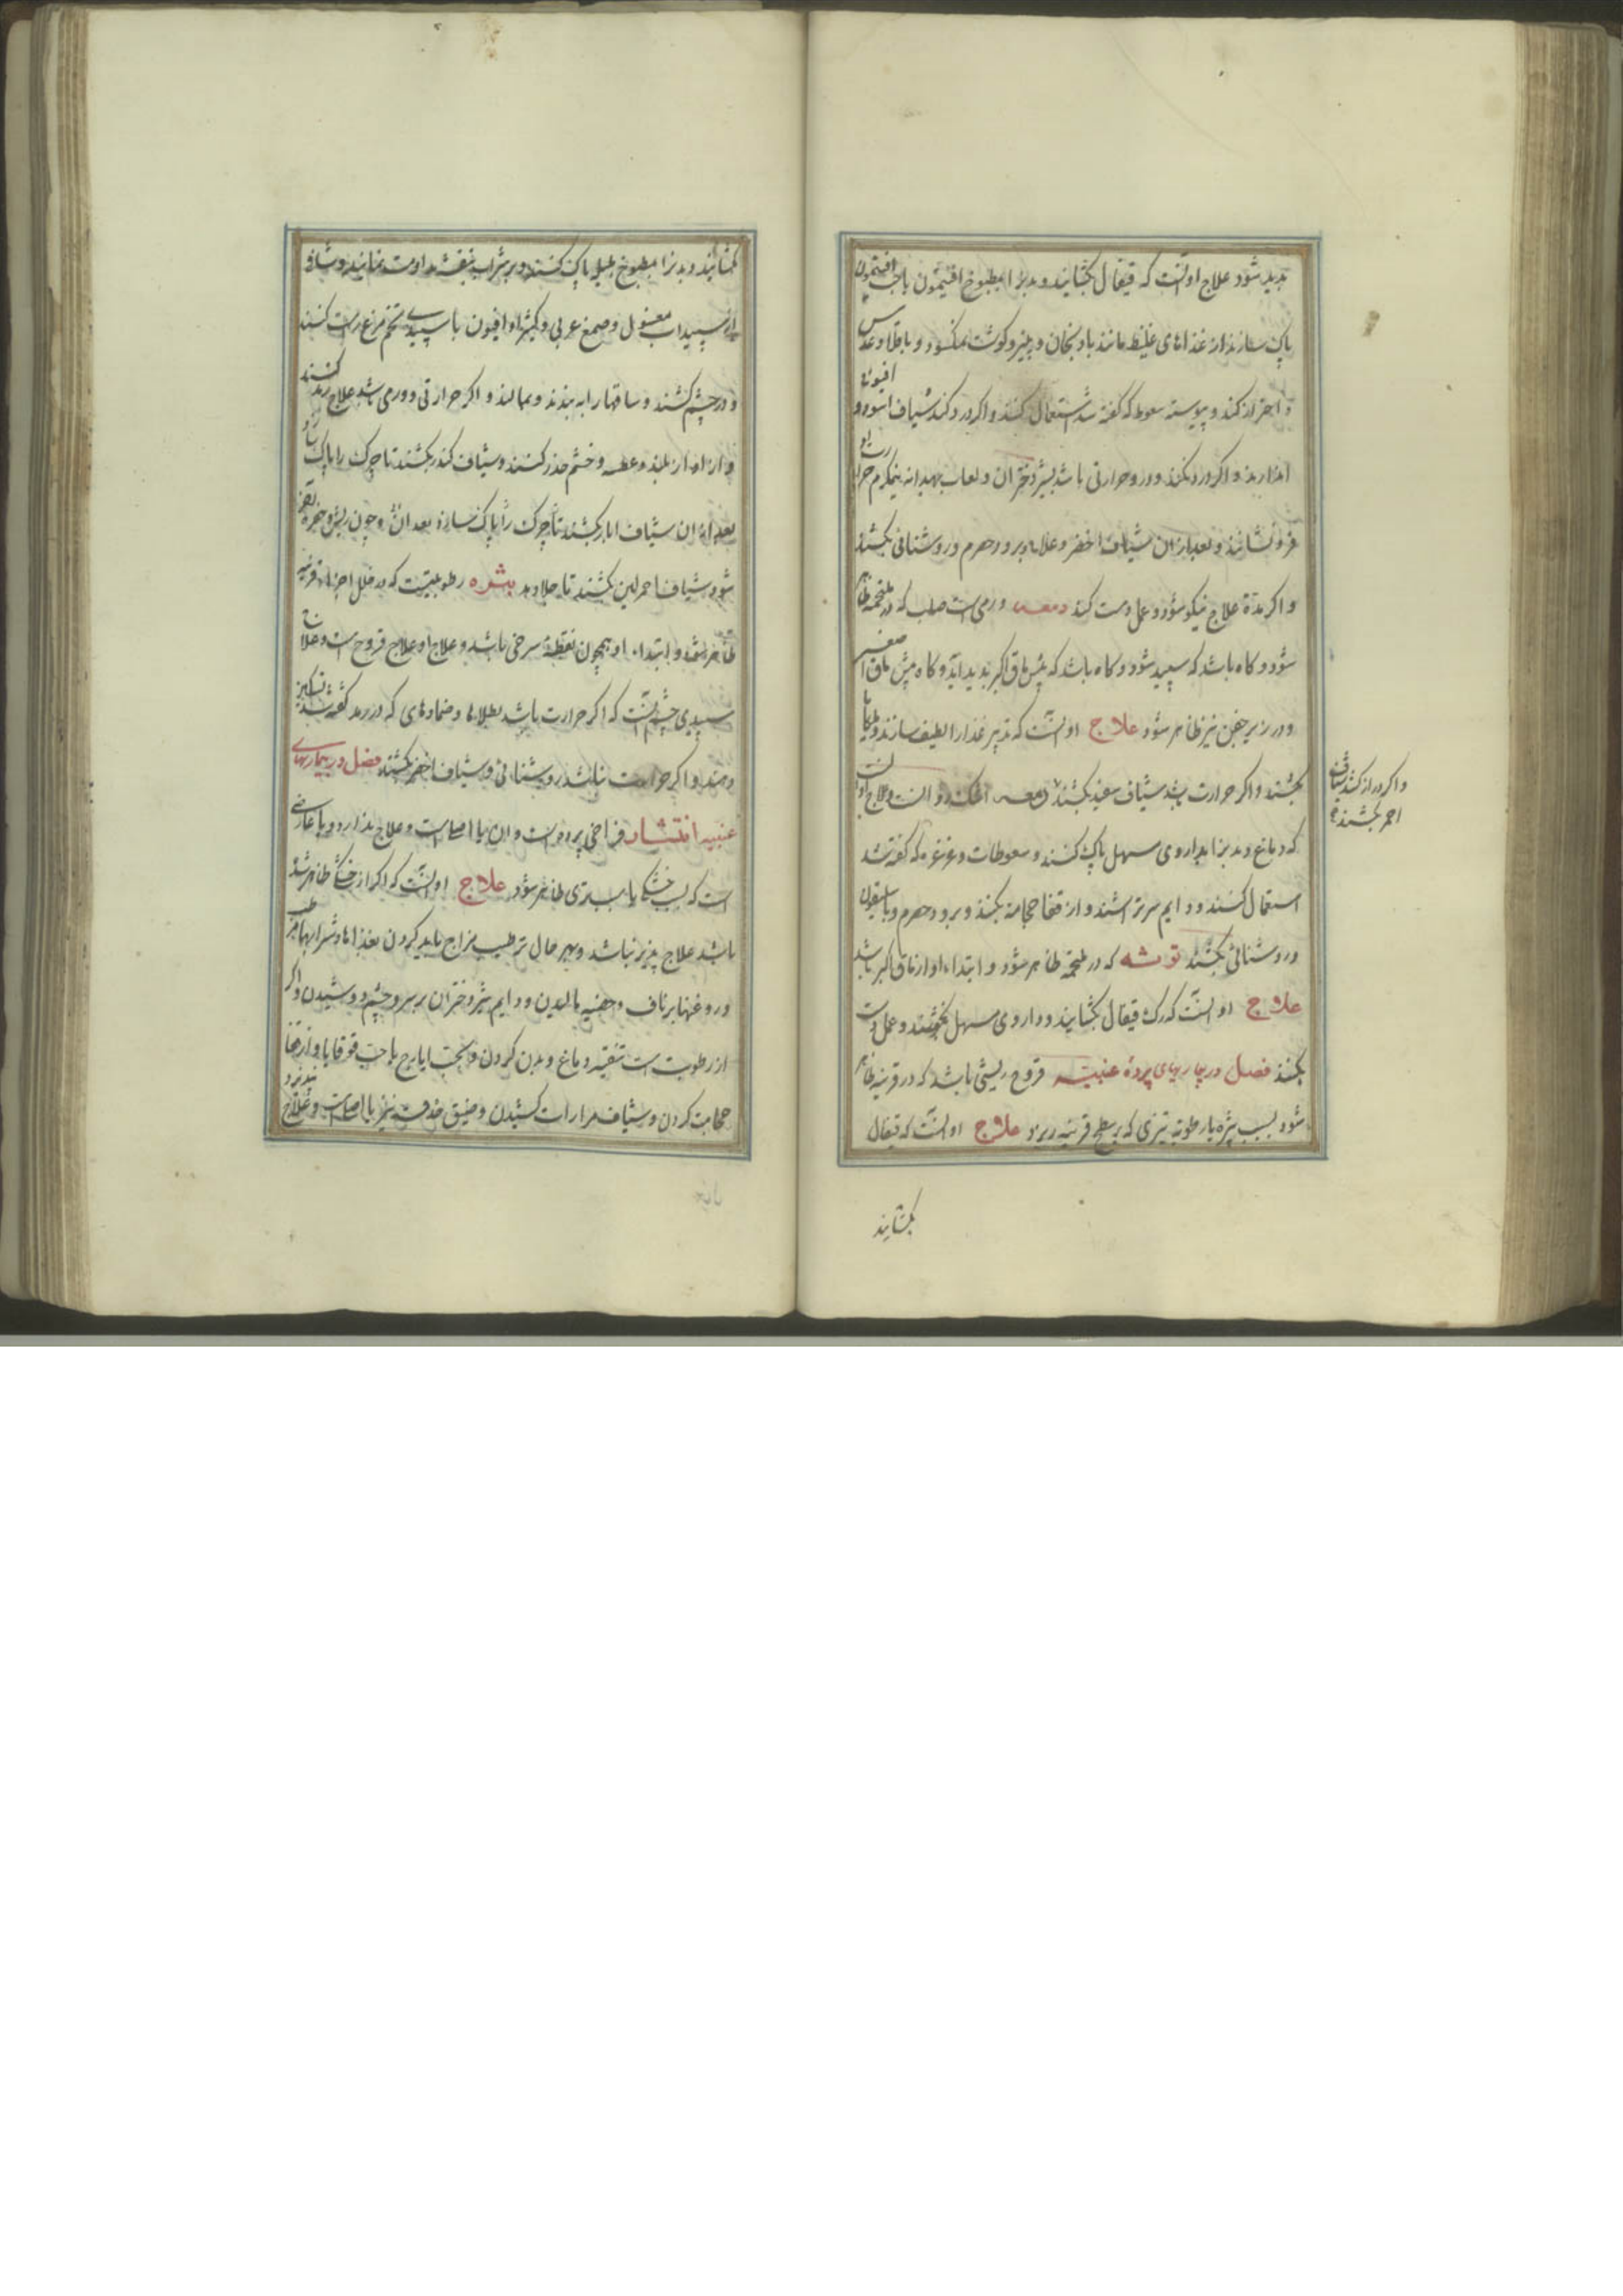 پدید شود علاج او آنست که قیفال بکشایند و بدنرا بمطبوخ افتیمون یا حب افتیمون
پاک سازند از غذاهای غلیظ مانند بادنجان و پنیر و کوشت نمکسود و باقلا و عدس
و احتراز کند و پیوسته سعوط که گفته شد استعمال کنند و اکر درد کند شیاف اسود و افیون
اندازند و اکر درد نکند و درو حرارتی باشد بشیر دختران و لعاب بهدانه نیمکرم حرارت او
فرو نشانند و بعد از ان شیاف اخضر و برود حصرم و روشنائی بکشند
و اکر بدین علاج نیکو نشود عمل دست کنند ورمی است صلب که در ملتحمه ظاهر
شود و کاه باشد که سپید شود و کاه باشد که پیش ماق اکبر پدید آید و کاه پیش ماق اصغر
و در زیر جفن نیز ظاهر شود علاج او آنست که تدبیر غذا را لطیف سازند
بکشند و اکر حرارت باشد شیاف سفید بکشند دمعه و علاج او آنست
که دماغ و بدنرا بداروی مسهل پاک کنند و سعوطات و غرغره که گفته شد
استعمال کنند و دایم سر تراشند و از قفا حجامة بکنند و برود حصرم و باسلیقون
و روشنائی بکشند توشه که در ملتحمه ظاهر شود و ابتداء او از ماق اکبر باشد
علاج او آنست که رک قیفال بکشایند و داروی مسهل بخورند و عمل دست
بکنند فصل در بیماریهای پردهٔ عنبیه قروح ریشی باشد که در قرنیه ظاهر
شود بسبب بثره یا رطوبة تیزی که بر سطح قرنیه ریزد علاج او آنست که قیفال
بکشایند
و اکر درد کند شیاف
احمر بکشند
بکشایند و بدنرا بمطبوخ هلیله پاک کنند و بر شراب بنفشه مداومت نمایند و شیاف
از سپیداب مغسول و صمغ عربی و کثیرا و افیون با سپیدی تخم مرغ راست کنند
و در چشم کشند و ساقها را به بندند و بمالند و اکر حرارتی و ورمی باشد علاج رمد کنند
و از اواز بلند و عطسه و خشم حذر کنند و شیاف کندر بکشند تا چرک را پاک سازد
بعد از ان شیاف ابار بکشند تا چرک را پاک سازد بعد ان و چون ریش
شود شیاف احمر لین بکشند تا جلا دهد بثره رطوبتیست که در خلل اجزاء قرنیه
ظاهر شود و ابتداء او همچون نقطهٔ سرخی باشد و علاج او علاج قروح است و علاج
سپیدی چشم آنست که اکر حرارت باشد بطلاها و ضمادهای که در رمد گفته شد تسکین
دهند و اکر حرارت نباشد روشنائی و شیاف اخضر بکشند فصل در بیماریهای
عنبیه انتشار فراخی پرده است و ان یا اصلی است و علاج ندارد و یا عارضی
است که بسبب خشکی یا بسبب تری ظاهر شود علاج او آنست که اکر از خشکی ظاهر شده
باشد علاج پذیر نباشد و بهر حال ترطیب مزاج باید کردن بغذاها و شرابها مرطب
و روغنها بر ناف و خصیه مالیدن و دایم شیر دختران بر سر و چشم دوشیدن و اکر
از رطوبت است تنقیه دماغ و بدن کردن و بحب ایارج یا حب قوقایا و از قفا
حجامت کردن و شیاف مرارات کشیدن و ضیق حدقه نیز یا اصلی است و علاج پذیرد